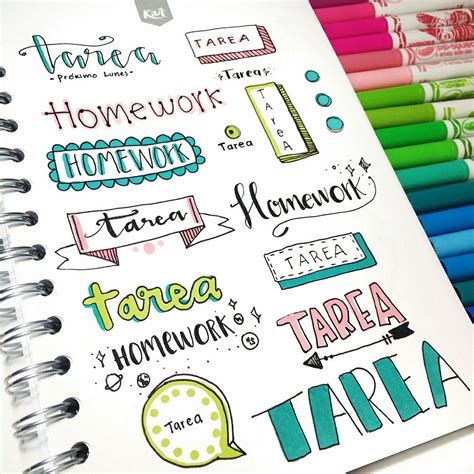 Kiut
tarea
- Próximo Lunes -
TAREA
Tarea
Homework
TAREA
HOMEWORK
Tarea
tarea
Homework
TAREA
tarea
HOMEWORK
TAREA
Tarea
TAREA